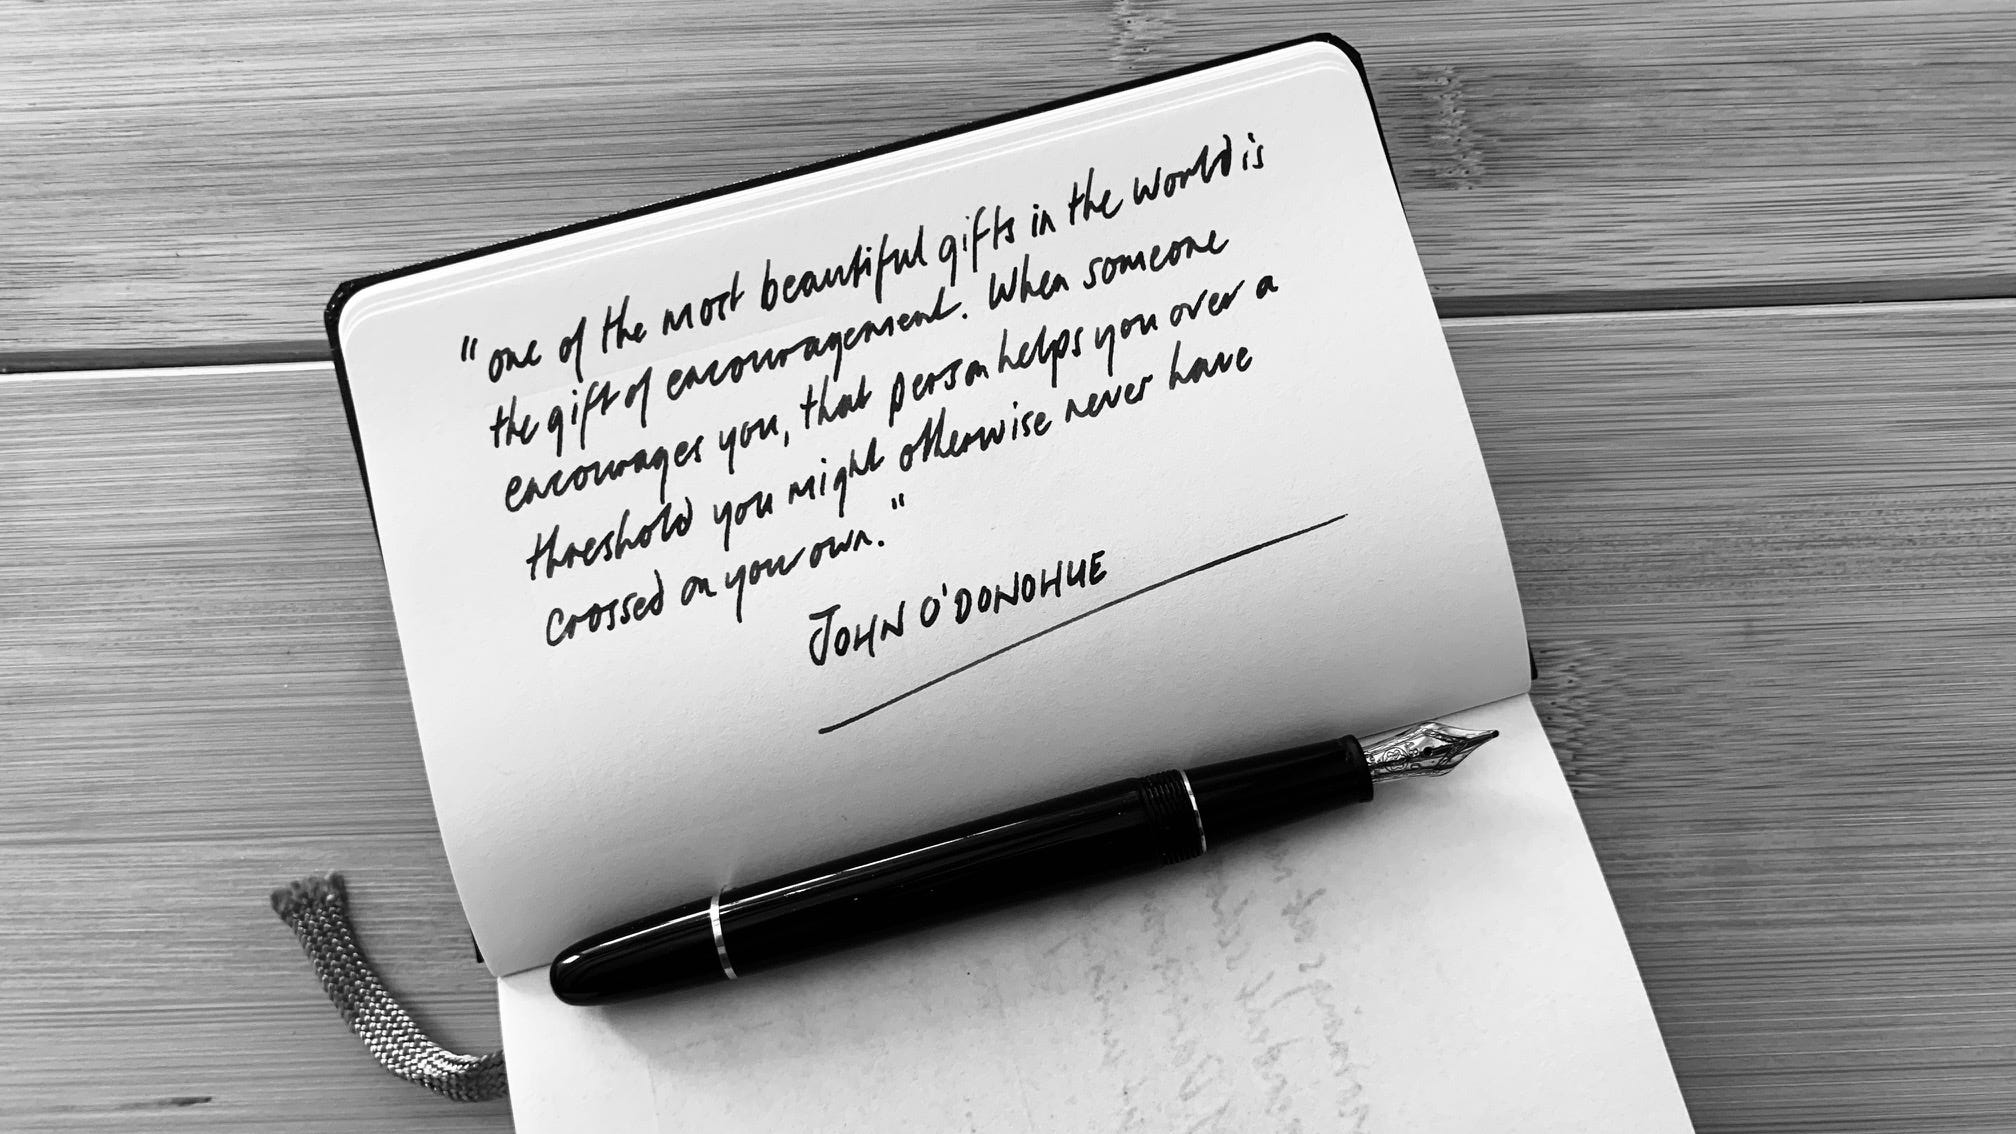 "one of the most beautiful gifts in the world is
the gift of encouragement. When someone
encourages you, that person helps you over a
threshold you might otherwise never have
crossed on your own."
JOHN O'DONOHUE